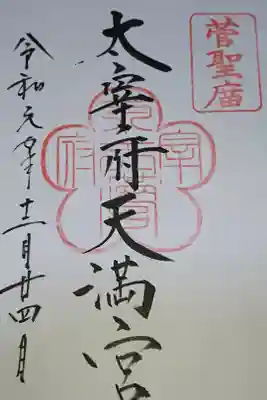 菅聖廟
太宰府天満宮
令和元年十二月廿四日